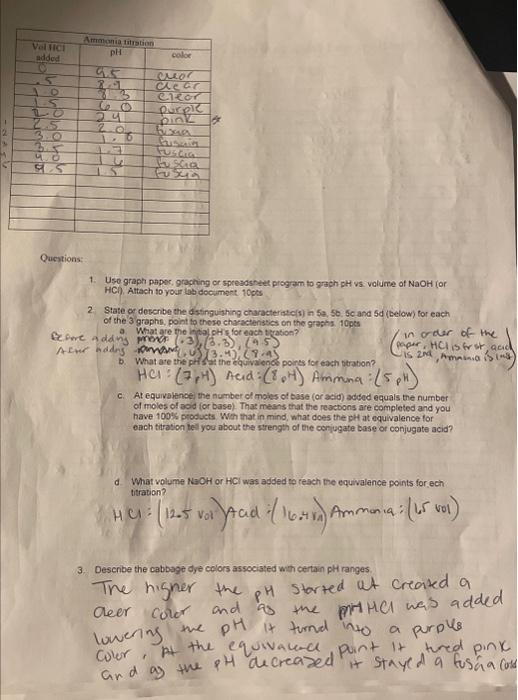 Ammonia titration
Vol HCl added pH color
0 9.5 clear
.5 8.9 clear
1.0 8.3 clear
1.5 6.0 purple
2.0 2.4 pink
2.5 2.0 fuscia
3.0 1.8
3.5 1.7 fuscia
4.0 1.6 fuscia
4.5 1.5 fuscia
1
2
3
4
5
Questions:
1. Use graph paper, graphing or spreadsheet program to graph pH vs. volume of NaOH (or
HCl). Attach to your lab document. 10pts
2. State or describe the distinguishing characteristic(s) in 5a, 5b, 5c and 5d (below) for each
of the 3 graphs, point to these characteristics on the graphs. 10pts
a. What are the initial pH's for each titration?
Before adding (.3), (3.3), (9.5)
After adding (3.4), (8.9)
(in order of the
paper, HCl is first, acid
is 2nd, Ammonia is last)
b. What are the pH's at the equivalence points for each titration?
HCl: (7 pH) Acid: (8 pH) Ammona: (5 pH)
c. At equivalence, the number of moles of base (or acid) added equals the number
of moles of acid (or base). That means that the reactions are completed and you
have 100% products. With that in mind, what does the pH at equivalence for
each titration tell you about the strength of the conjugate base or conjugate acid?
d. What volume NaOH or HCl was added to reach the equivalence points for ech
titration?
HCl: (12.5 vol) Acid: (16.4 vol) Ammonia: (1.5 vol)
3. Describe the cabbage dye colors associated with certain pH ranges.
The higher the pH started at created a
cleer color and as the HCl was added
lowering the pH it turnd into a purple
color, At the equivalence point it tured pink
and as the pH decreased it stayed a fushia